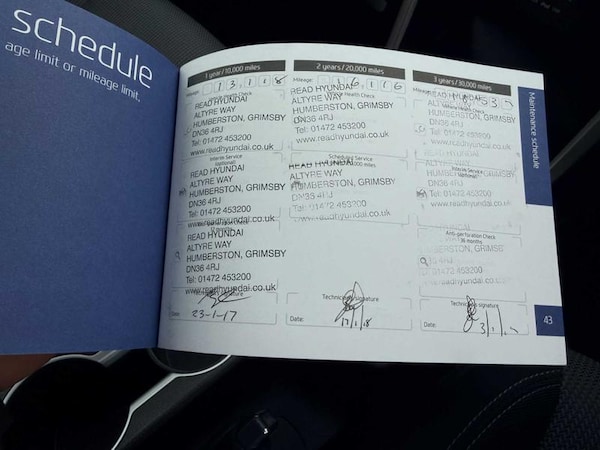 schedule
age limit or mileage limit.
1 year/10,000 miles
Mileage: 13,118
Health Check
READ HYUNDAI
ALTYRE WAY
HUMBERSTON, GRIMSBY
DN36 4RJ
Tel: 01472 453200
www.readhyundai.co.uk
Interim Service
(optional)
READ HYUNDAI
ALTYRE WAY
HUMBERSTON, GRIMSBY
DN36 4RJ
Tel: 01472 453200
www.readhyundai.co.uk
READ HYUNDAI
ALTYRE WAY
HUMBERSTON, GRIMSBY
DN36 4RJ
Tel: 01472 453200
www.readhyundai.co.uk
Date:
23-1-17
2 years/20,000 miles
Mileage: 16116
Health Check
READ HYUNDAI
ALTYRE WAY
HUMBERSTON, GRIMSBY
DN36 4RJ
Tel: 01472 453200
www.readhyundai.co.uk
Scheduled Service
READ HYUNDAI
ALTYRE WAY
HUMBERSTON, GRIMSBY
DN36 4RJ
www.readhyundai.co.uk
Technician signature
Date:
17/1/18
3 years/30,000 miles
READ HYUNDAI
HUMBERSTON, GRIMSBY
DN36 4RJ
Tel: 01472 453200
www.readhyundai.co.uk
READ HYUNDAI
ALTYRE WAY
DN36 4RJ
Tel: 01472 453200
www.readhyundai.co.uk
Anti-perforation Check
36 months
GRIMSBY
01472 453200
Technician signature
Date:
Maintenance schedule
43